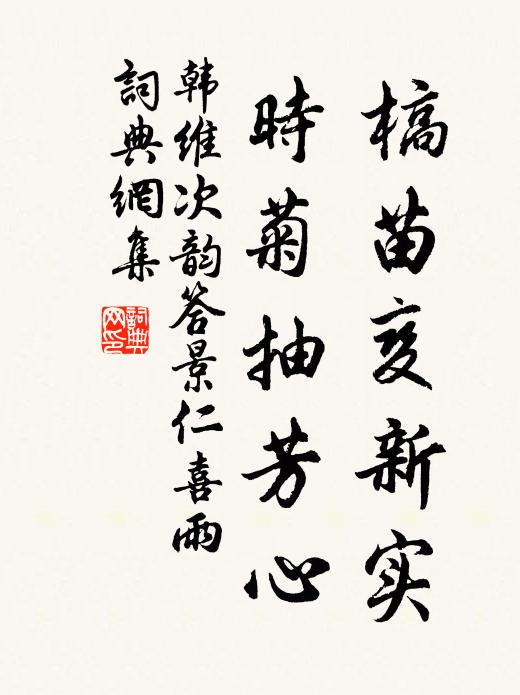 槁苗变新实
時菊抽芳心
韩维次韵答景仁喜雨
詞典網集
詞典网印